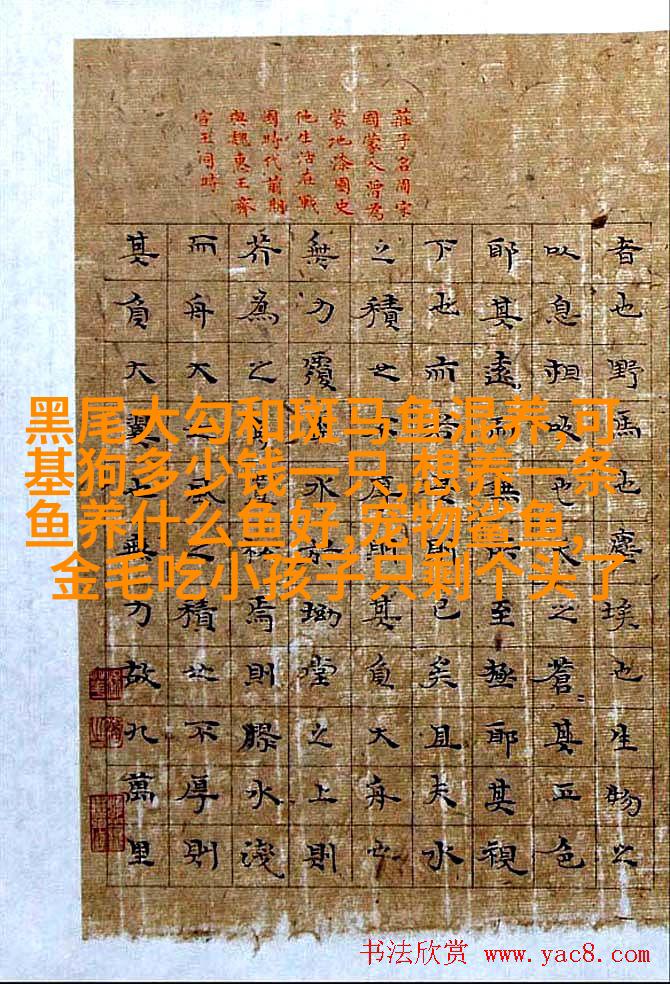 莊子名周宋
國蒙人曾為
蒙地漆園史
他生活在戰
國時代前期
與魏惠王齊
宣王同時
者也野馬也塵埃也生物之
以息相吹也天之蒼〻其正色
耶其遠而無所至極耶其視
下也而若是則已矣且夫水
之積也不厚則其負大舟也
無力覆杯水於坳堂之上則
芥為之舟置杯焉則膠水淺
而舟大也風之積也不厚則
其負大翼也無力故九萬里
黑尾大勾和斑马鱼混养,可
基狗多少钱一只,想养一条
鱼养什么鱼好,宠物鲨鱼,
金毛吃小孩子只剩个头了
书法欣赏 www.yac8.com